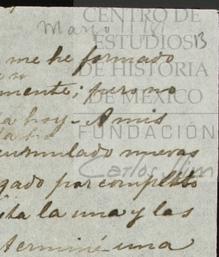 Mayo 1/18
13
CENTRO DE
ESTUDIOS
DE HISTORIA
DE MEXICO
FUNDACIÓN
Carlos Slim
me he formado
mente; pero no
hoy - A mis
cumulado nuevas
gado por completo
ita la una y las
terminé una